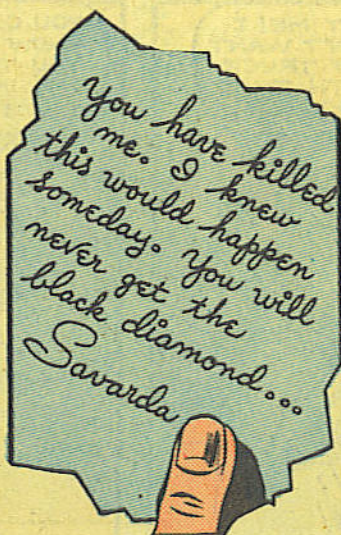 you have killed
me. I knew
this would happen
someday. you will
never get the
black diamond...
Savarda